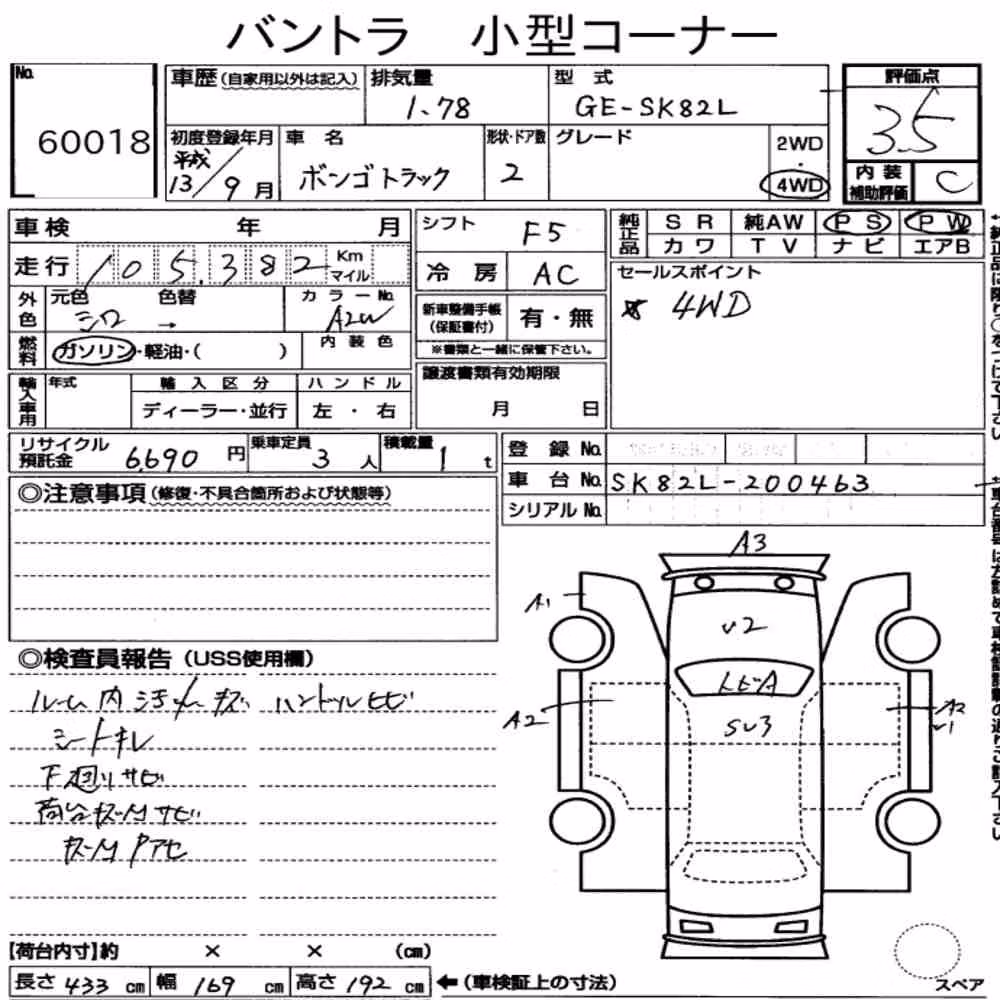 バントラ 小型コーナー
No. 60018
車歴(自家用以外は記入)
排気量 1.78
型式 GE-SK82L
評価点 3.5
初度登録年月 平成 13/9月
車名 ボンゴトラック
形状・ドア数 2
グレード
2WD・4WD
内装補助評価 C
車検 年 月
シフト F5
純正品 SR 純AW PS PW
カワ TV ナビ エアB
走行 105,382 Km マイル
冷房 AC
セールスポイント
※4WD
外色 元色 シロ 色替 →
カラーNo. A2W
新車整備手帳(保証書付) 有・無
※書類と一緒に保管下さい。
燃料 ガソリン・軽油・( )
内装色
輸入車用 年式
輸入区分 ディーラー・並行
ハンドル 左・右
譲渡書類有効期限
月 日
リサイクル預託金 6690円
乗車定員 3人
積載量 1t
登録No.
車台No. SK82L-200463
シリアルNo.
◎注意事項(修復・不具合箇所および状態等)
◎検査員報告(USS使用欄)
ルーム内ヨゴレ キズ ハンドルヒビ
シートキレ
下廻りサビ
荷台キズ凹サビ
キズ凹 Pアセ
A3
A1
U2
トビA
A2
SU3
A2
U1
【荷台内寸】約 × × (cm)
長さ433cm 幅169cm 高さ192cm ←(車検証上の寸法)
スペア